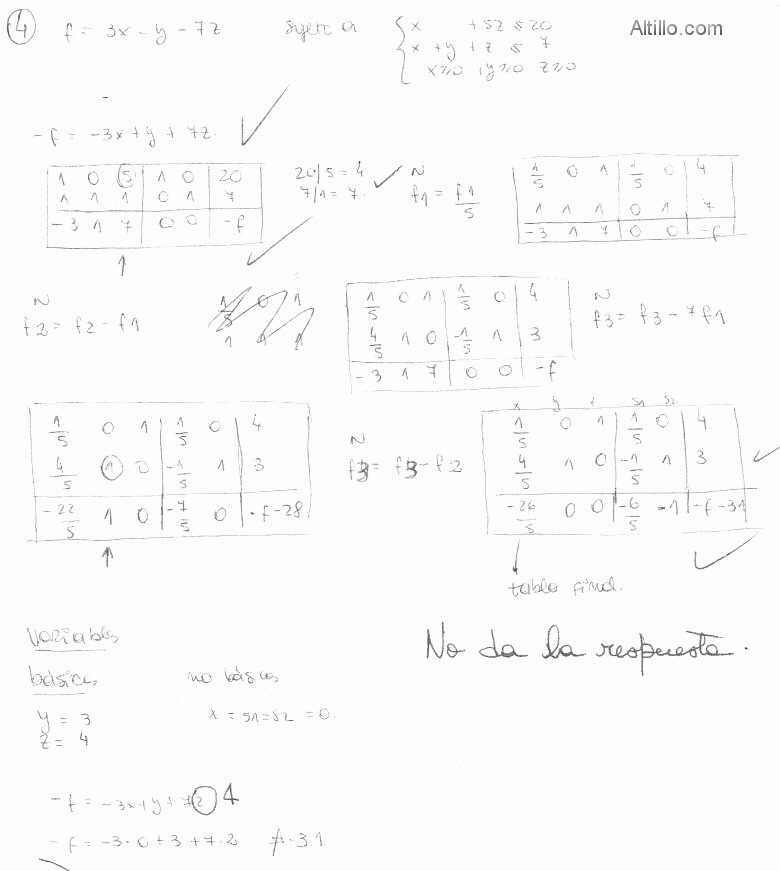 4 f = 3x - y - 7z sujeto a { x + 5z ≤ 20
x + y + z ≤ 7
x≥0, y≥0 z≥0
Altillo.com
-f = -3x + y + 7z
1 0 5 | 1 0 | 20
1 1 1 | 0 1 | 7
-3 1 7 | 0 0 | -f
20/5 = 4
7/1 = 7
N
f1 = f1/5
1/5 0 1 | 1/5 0 | 4
1 1 1 | 0 1 | 7
-3 1 7 | 0 0 | -f
N
f2 = f2 - f1
1/5 0 1
1 1 1
1/5 0 1 | 1/5 0 | 4
4/5 1 0 | -1/5 1 | 3
-3 1 7 | 0 0 | -f
N
f3 = f3 - 7f1
1/5 0 1 | 1/5 0 | 4
4/5 1 0 | -1/5 1 | 3
-22/5 1 0 | -7/5 0 | -f-28
N
f3 = f3 - f2
x y z s1 s2
1/5 0 1 | 1/5 0 | 4
4/5 1 0 | -1/5 1 | 3
-26/5 0 0 | -6/5 -1 | -f-31
tabla final.
No da la respuesta.
Variables
básicas
no básicas
y = 3
z = 4
x = s1 = s2 = 0.
-f = -3x + y + 7z 4
-f = -3·0 + 3 + 7·2 31